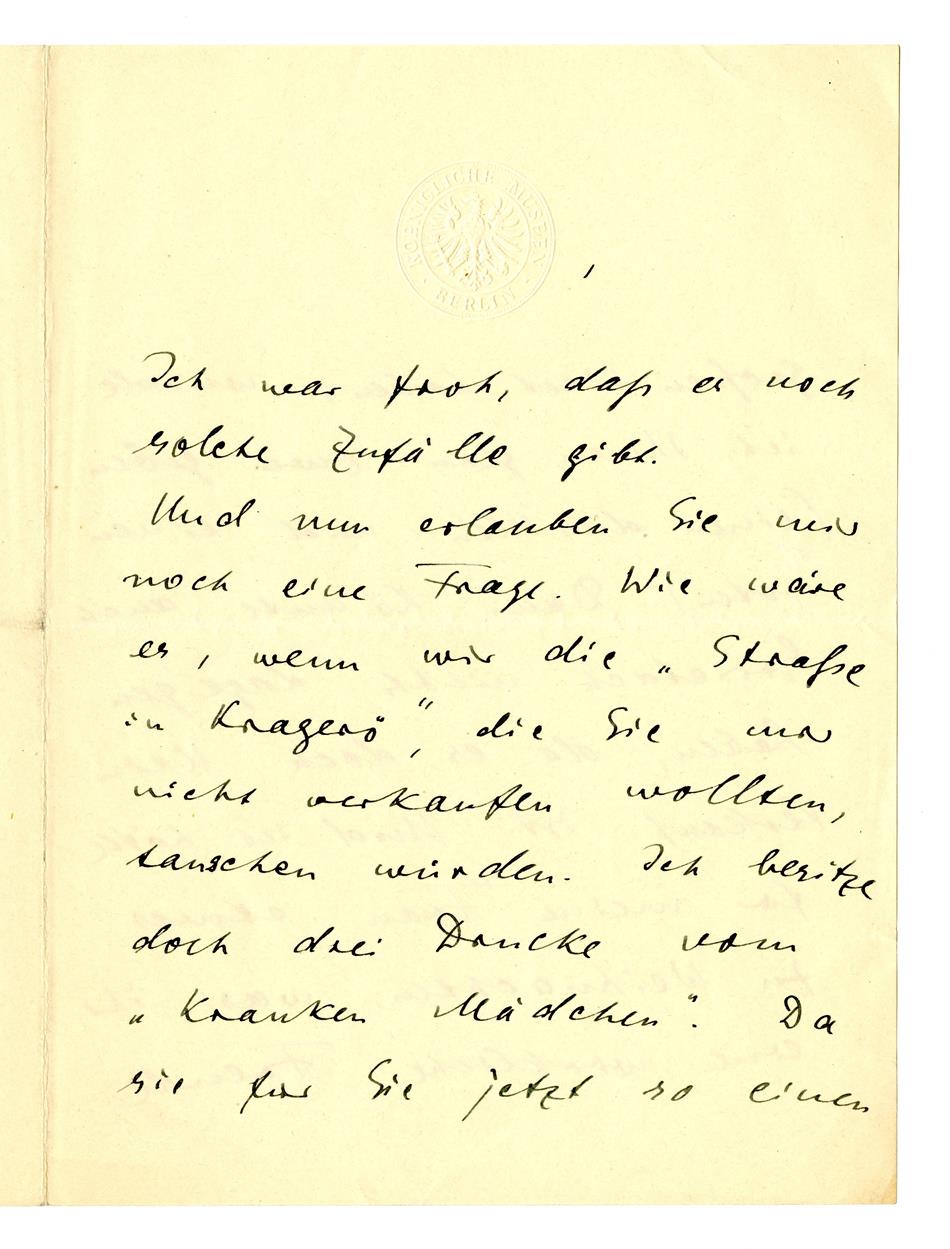 KOENIGLICHE MUSEEN
BERLIN
Ich war froh, daß es noch
solche Zufälle gibt.
Und nun erlauben Sie mir
noch eine Frage. Wie wäre
es, wenn wir die „Straße
in Kragerö“, die Sie mir
nicht verkaufen wollten,
tauschen würden. Ich besitze
doch drei Drucke vom
„Kranken Mädchen“. Da
sie für Sie jetzt so einen